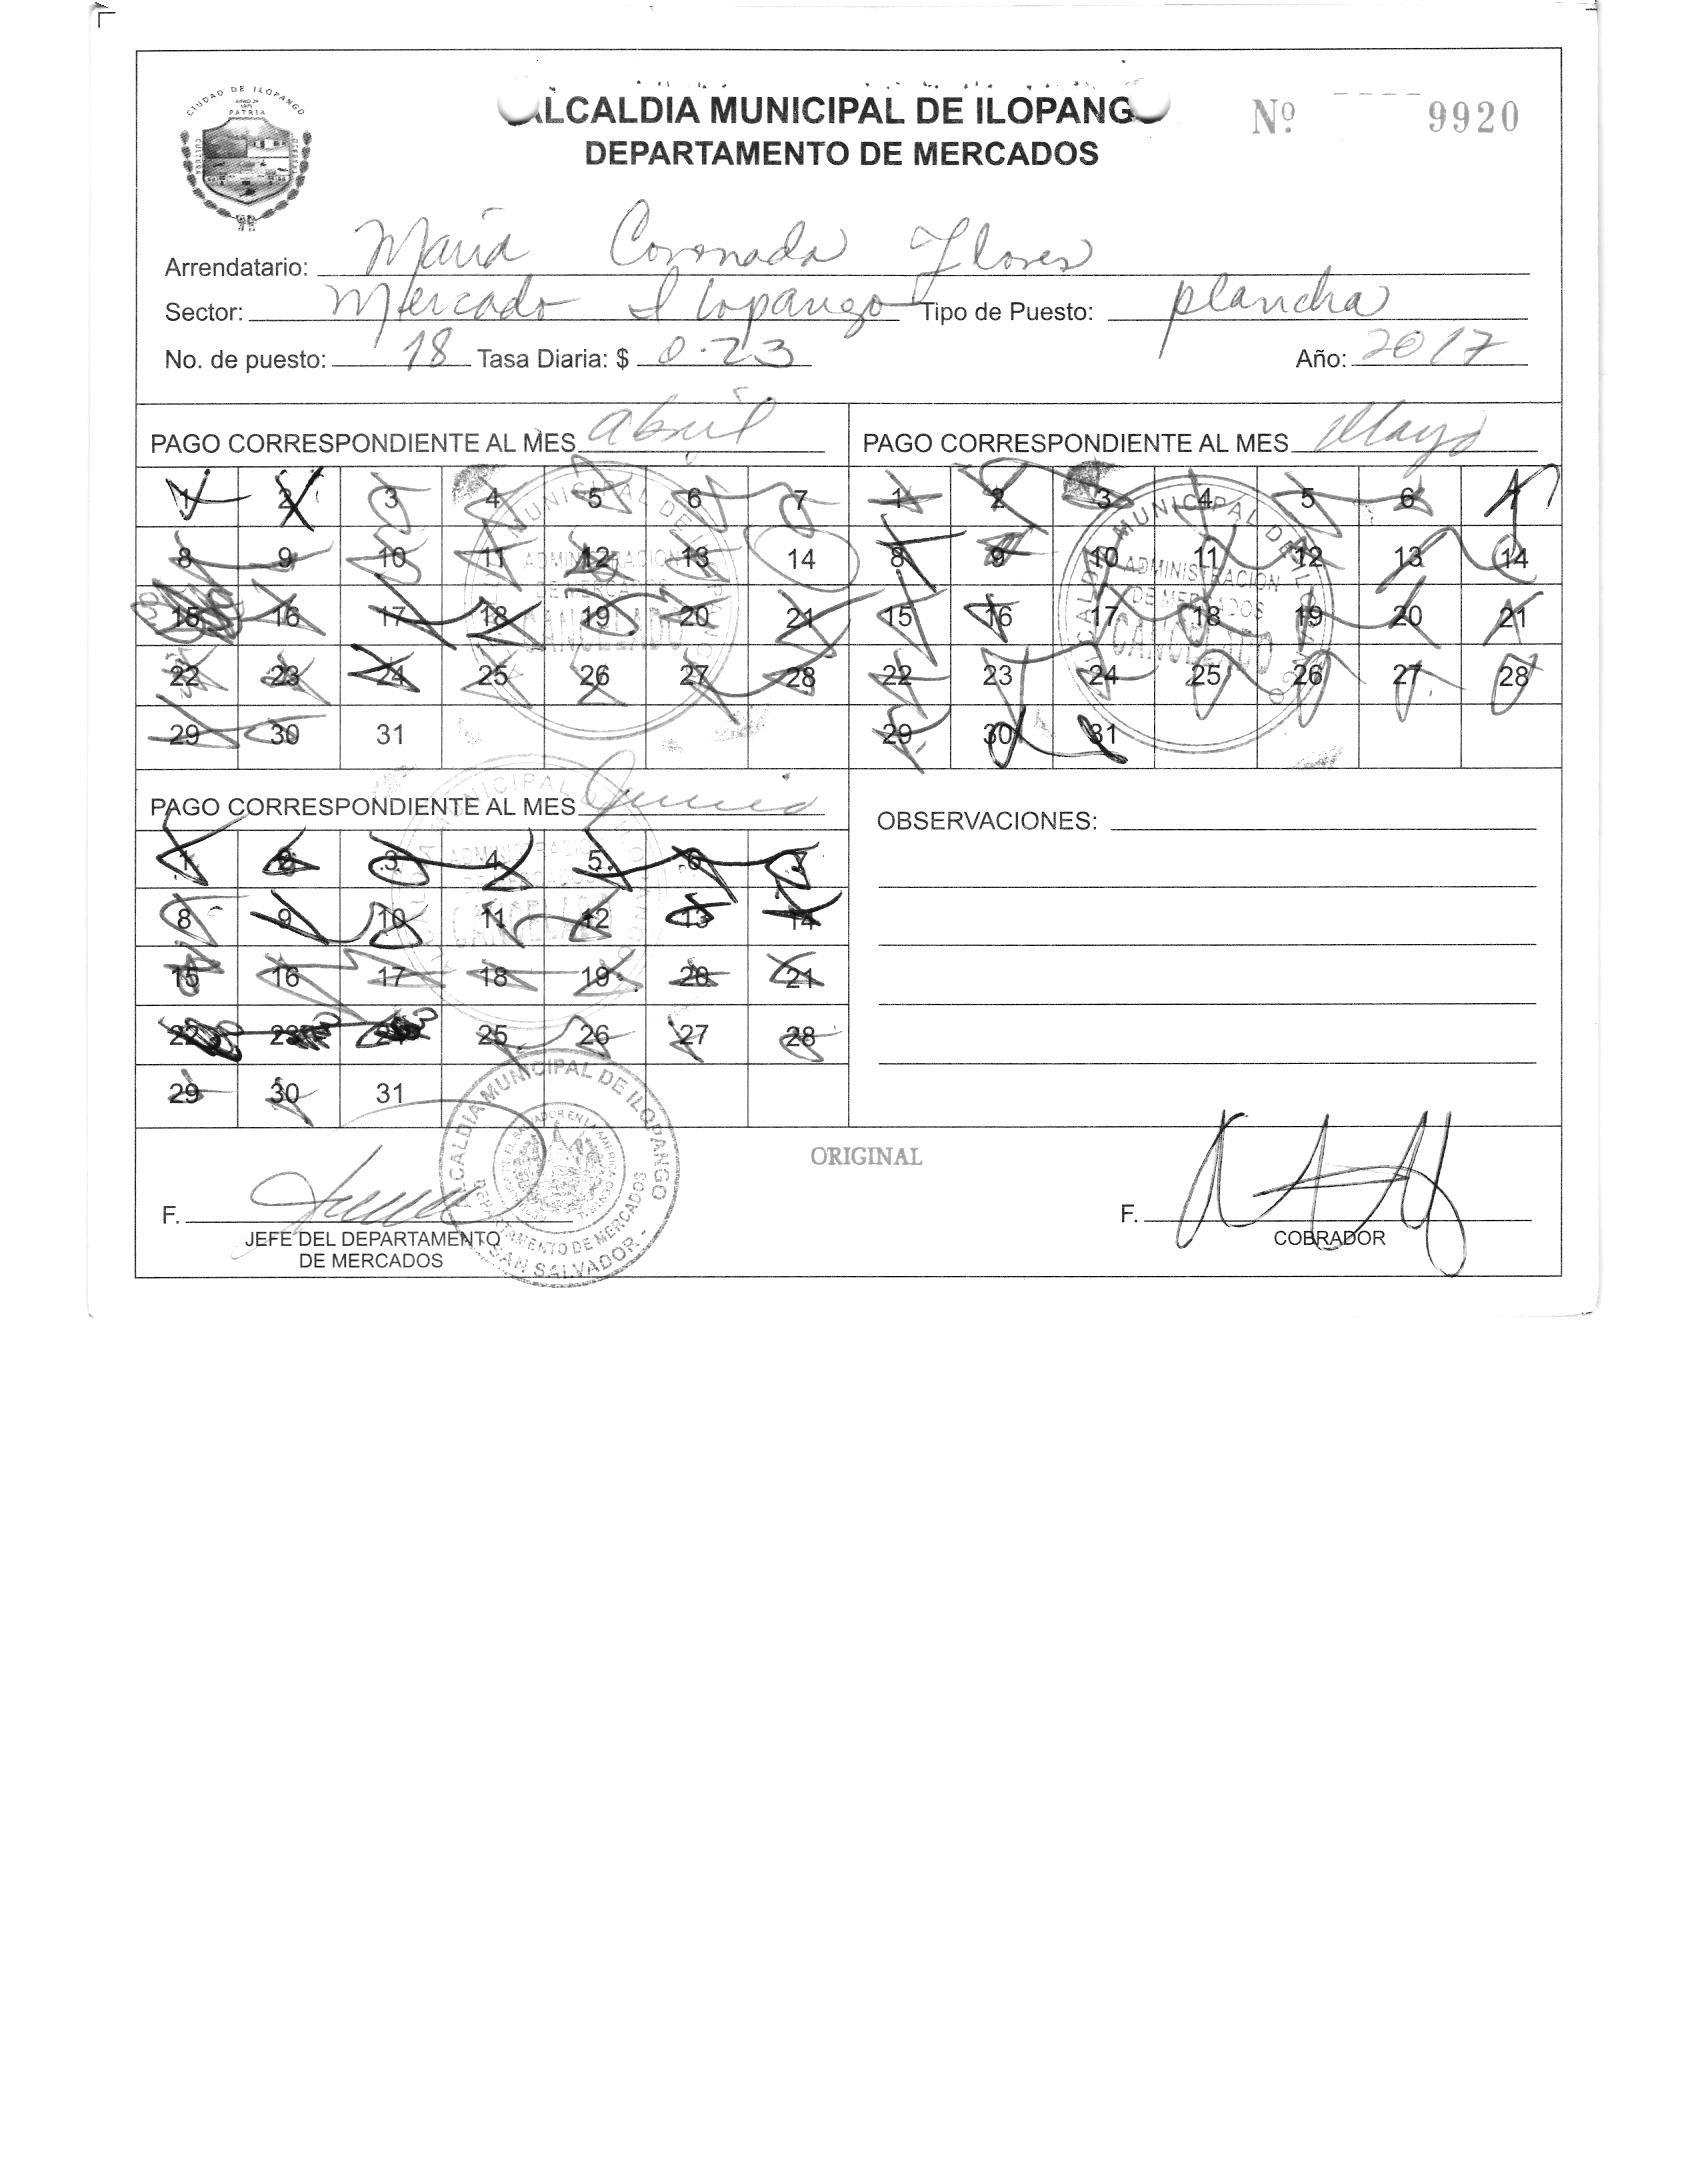 CIUDAD DE ILOPANGO
PATRIA
CULTURA
ALCALDIA MUNICIPAL DE ILOPANGO
DEPARTAMENTO DE MERCADOS
Nº 9920
Arrendatario: Maria Coronada Flores
Sector: Mercado Ilopango Tipo de Puesto: plancha
No. de puesto: 18 Tasa Diaria: $ 0.23 Año: 2017
PAGO CORRESPONDIENTE AL MES abril
1 2 3 4 5 6 7
8 9 10 11 12 13 14
15 16 17 18 19 20 21
22 23 24 25 26 27 28
29 30 31
ALCALDIA MUNICIPAL DE ILOPANGO
ADMINISTRACION
DE MERCADOS
CANCELADO
PAGO CORRESPONDIENTE AL MES Mayo
1 2 3 4 5 6 7
8 9 10 11 12 13 14
15 16 17 18 19 20 21
22 23 24 25 26 27 28
29 30 31
ALCALDIA MUNICIPAL DE ILOPANGO
ADMINISTRACION
DE MERCADOS
CANCELADO
PAGO CORRESPONDIENTE AL MES Junio
1 2 3 4 5 6 7
8 9 10 11 12 13 14
15 16 17 18 19 20 21
22 23 24 25 26 27 28
29 30 31
MUNICIPAL
ADMINISTRACION
DE MERCADOS
CANCELADO
OBSERVACIONES:
ORIGINAL
ALCALDIA MUNICIPAL DE ILOPANGO
DEPARTAMENTO DE MERCADOS
SAN SALVADOR
F.
JEFE DEL DEPARTAMENTO
DE MERCADOS
F.
COBRADOR